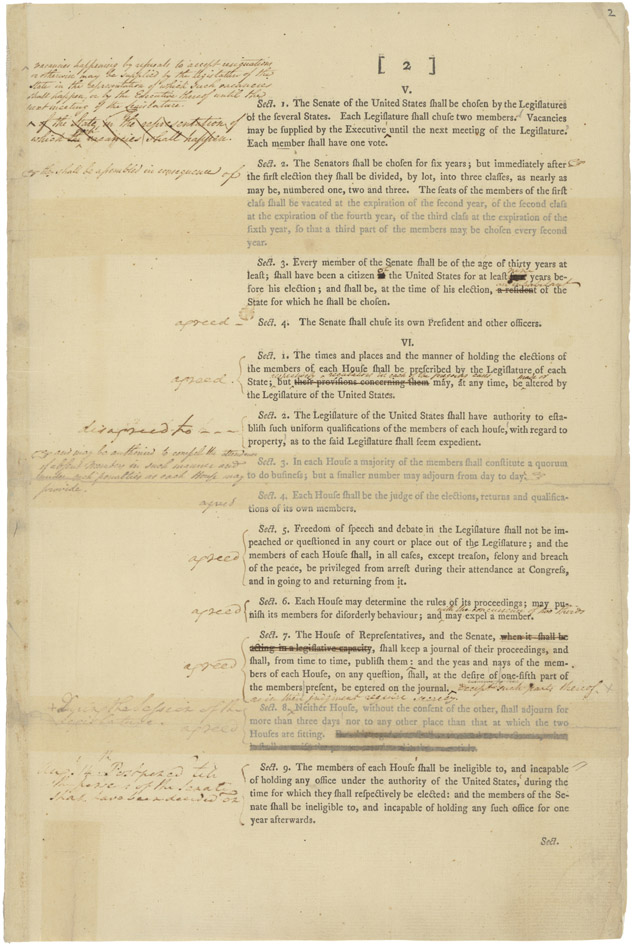 2
[ 2 ]
vacancies happening by refusals to accept resignations
or otherwise may be supplied by the legislature of the
State in the representation of which such vacancies
shall happen, or by the Executive thereof until the
next meeting of the Legislature.
of the State in the representation of
which the vacancies shall happen.
V.
Sect. 1. The Senate of the United States shall be chosen by the Legislatures
of the several States. Each Legislature shall chuse two members. Vacancies
may be supplied by the Executive until the next meeting of the Legislature.
Each member shall have one vote.
they shall be assembled in consequence of
Sect. 2. The Senators shall be chosen for six years; but immediately after
the first election they shall be divided, by lot, into three classes, as nearly as
may be, numbered one, two and three. The seats of the members of the first
class shall be vacated at the expiration of the second year, of the second class
at the expiration of the fourth year, of the third class at the expiration of the
sixth year, so that a third part of the members may be chosen every second
year.
Sect. 3. Every member of the Senate shall be of the age of thirty years at
least; shall have been a citizen the United States for at least years be-
fore his election; and shall be, at the time of his election, a resident of the
State for which he shall be chosen.
agreed — Sect. 4. The Senate shall chuse its own President and other officers.
VI.
Sect. 1. The times and places and the manner of holding the elections of
the members of each House shall be prescribed by the Legislature of each
agreed
State; but their provisions concerning them may, at any time, be altered by
the Legislature of the United States.
Sect. 2. The Legislature of the United States shall have authority to esta-
disagreed to - - -
blish such uniform qualifications of the members of each house, with regard to
property, as to the said Legislature shall seem expedient.
and may be authorised to compel the attendance
of absent members in such manner and
under such penalties as each House may
provide.
Sect. 3. In each House a majority of the members shall constitute a quorum
to do business; but a smaller number may adjourn from day to day.
agreed
Sect. 4. Each House shall be the judge of the elections, returns and qualifica-
tions of its own members.
Sect. 5. Freedom of speech and debate in the Legislature shall not be im-
peached or questioned in any court or place out of the Legislature; and the
agreed
members of each House shall, in all cases, except treason, felony and breach
of the peace, be privileged from arrest during their attendance at Congress,
and in going to and returning from it.
agreed
Sect. 6. Each House may determine the rules of its proceedings; may pu-
with the concurrence of two thirds
nish its members for disorderly behaviour; and may expel a member.
Sect. 7. The House of Representatives, and the Senate, when it shall be
acting in a legislative capacity, shall keep a journal of their proceedings, and
agreed
shall, from time to time, publish them: and the yeas and nays of the mem-
bers of each House, on any question, shall, at the desire of one-fifth part of
the members present, be entered on the journal. except such parts thereof
as in their judgment require secrecy
During the session of the
legislature.
agreed
Sect. 8. Neither House, without the consent of the other, shall adjourn for
more than three days nor to any other place than that at which the two
Houses are sitting.
Postponed till
the powers of the Senate
shall have been decided on
Sect. 9. The members of each House shall be ineligible to, and incapable
of holding any office under the authority of the United States, during the
time for which they shall respectively be elected: and the members of the Se-
nate shall be ineligible to, and incapable of holding any such office for one
year afterwards.
Sect.